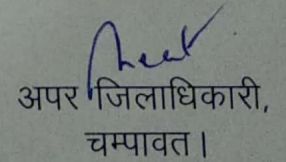 अपर जिलाधिकारी,
चम्पावत।